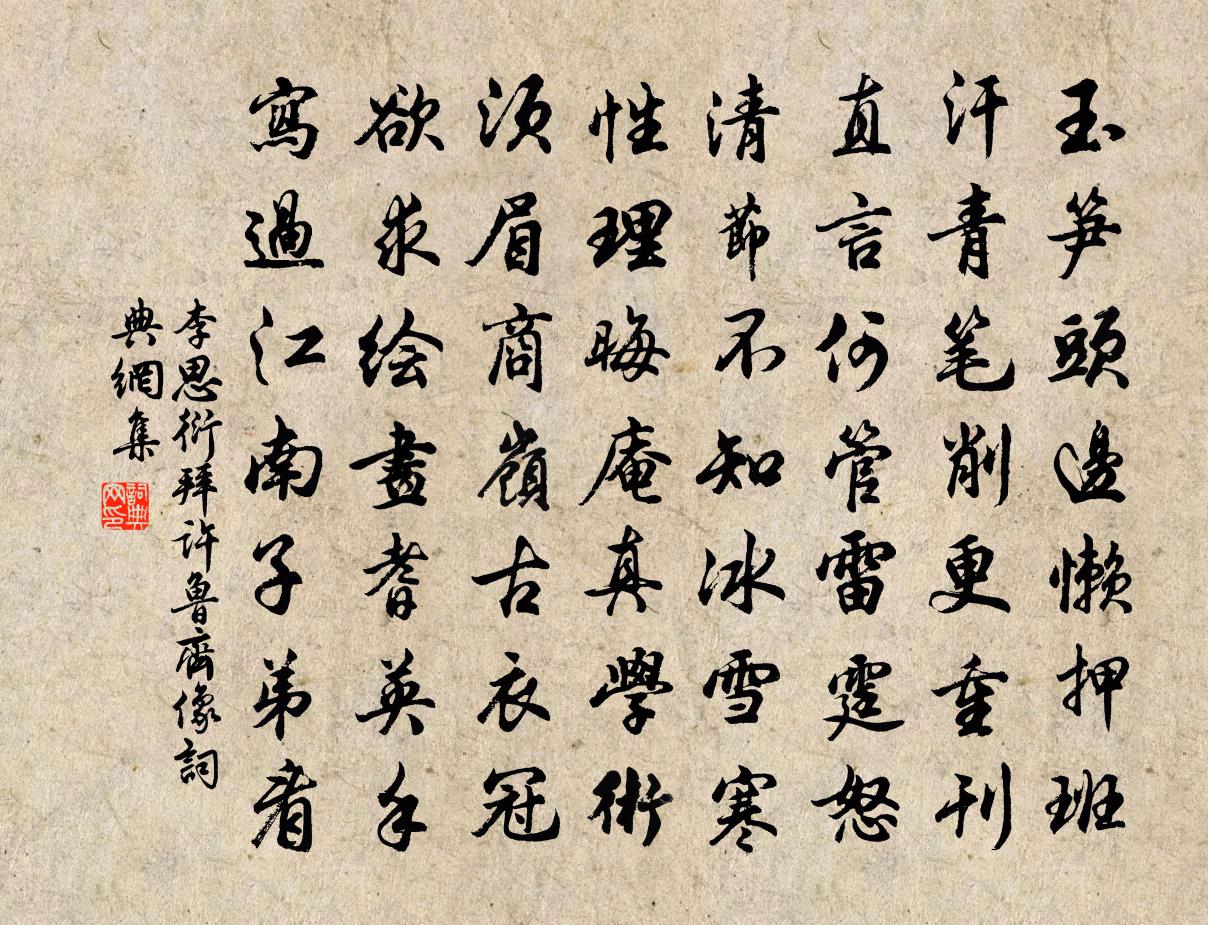 玉笋頭邊懶押班
汗青笔削更重刊
直言何管雷霆怒
清節不知冰雪寒
性理晦庵真學術
須眉商嶺古衣冠
欲求绘畫耆英手
寫過江南子弟看
李思衍拜许魯齊像詞
典網集
詞典
网印